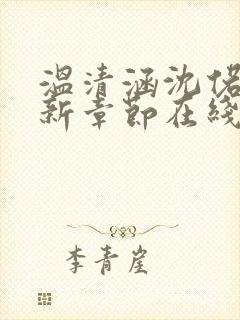 温清涵沈偌
新章節在綫
李青崖